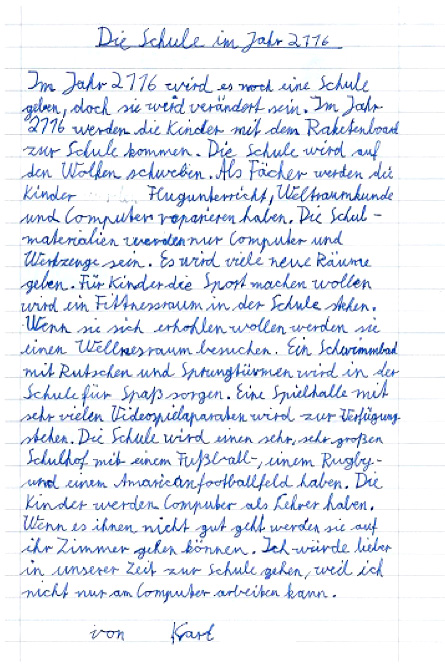 Die Schule im Jahr 2776
Im Jahr 2776 wird es noch eine Schule
geben, doch sie weid verändert sein. Im Jahr
2776 werden die Kinder mit dem Raketenboard
zur Schule kommen. Die Schule wird auf
den Wolken schweben. Als Fächer werden die
Kinder Flugunterricht, Weltraumkunde
und Computer raparieren haben. Die Schul-
materialien werden nur Computer und
Werkzeuge sein. Es wird viele neue Räume
geben. Für Kinder die Sport machen wollen
wird ein Fittnessraum in der Schule stehen.
Wenn sie sich erhohlen wollen werden sie
einen Wellnesraum besuchen. Ein Schwimmbad
mit Rutschen und Sprungtürmen wird in der
Schule für Spaß sorgen. Eine Spielhalle mit
sehr vielen Videospielaparaten wird zur Verfügung
stehen. Die Schule wird einen sehr, sehr großen
Schulhof mit einem Fußball-, einem Rugby-
und einem Amaricanfootballfeld haben. Die
Kinder werden Computer als Lehrer haben.
Wenn es ihnen nicht gut geht werden sie auf
ihr Zimmer gehen können. Ich würde lieber
in unserer Zeit zur Schule gehen, weil ich
nicht nur am Computer arbeiten kann.
von Karl